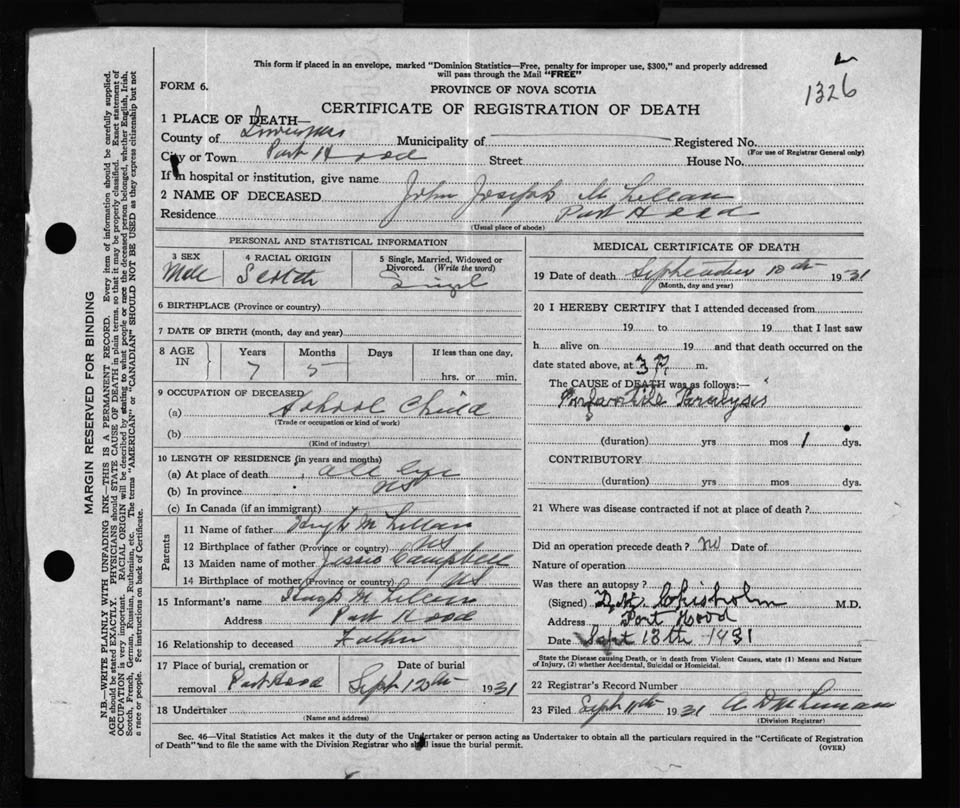 This form if placed in an envelope, marked "Dominion Statistics—Free, penalty for improper use, $300," and properly addressed
will pass through the Mail "FREE"
1326
FORM 6.
PROVINCE OF NOVA SCOTIA
CERTIFICATE OF REGISTRATION OF DEATH
1 PLACE OF DEATH—
County of Inverness Municipality of Registered No.
(For use of Registrar General only)
City or Town Port Hood Street House No.
If in hospital or institution, give name
2 NAME OF DECEASED John Joseph McLellan
Residence Port Hood
(Usual place of abode)
PERSONAL AND STATISTICAL INFORMATION
3 SEX 4 RACIAL ORIGIN 5 Single, Married, Widowed or
Divorced. (Write the word)
Male Scotch Single
6 BIRTHPLACE (Province or country)
7 DATE OF BIRTH (month, day and year)
8 AGE IN Years Months Days If less than one day,
7 5 hrs. or min.
9 OCCUPATION OF DECEASED
(a) School Child
(Trade or occupation or kind of work)
(b)
(Kind of industry)
10 LENGTH OF RESIDENCE (in years and months)
(a) At place of death all life
(b) In province NS
(c) In Canada (if an immigrant)
Parents
11 Name of father Hugh McLellan
12 Birthplace of father (Province or country) NS
13 Maiden name of mother Jessie Campbell
14 Birthplace of mother (Province or country) NS
15 Informant's name Hugh McLellan
Address Port Hood
16 Relationship to deceased Father
17 Place of burial, cremation or Date of burial
removal Port Hood Sept 12th 1931
18 Undertaker
(Name and address)
MEDICAL CERTIFICATE OF DEATH
19 Date of death September 10th 1931
(Month, day and year)
20 I HEREBY CERTIFY that I attended deceased from
19 to 19 that I last saw
h alive on 19 and that death occurred on the
date stated above, at 3 P. m.
The CAUSE of DEATH was as follows:—
Infantile Paralysis
(duration) yrs mos 1 dys.
CONTRIBUTORY
(duration) yrs mos dys.
21 Where was disease contracted if not at place of death?
Did an operation precede death? no Date of
Nature of operation
Was there an autopsy?
(Signed) Chisholm M.D.
Address Port Hood
Date Sept 13th 1931
State the Disease causing Death, or in death from Violent Causes, state (1) Means and Nature
of Injury, (2) whether Accidental, Suicidal or Homicidal.
22 Registrar's Record Number
23 Filed Sept 11th 1931
(Division Registrar)
Sec. 46—Vital Statistics Act makes it the duty of the Undertaker or person acting as Undertaker to obtain all the particulars required in the "Certificate of Registration
of Death" and to file the same with the Division Registrar who shall issue the burial permit.
(OVER)
MARGIN RESERVED FOR BINDING
N.B.—WRITE PLAINLY WITH UNFADING INK—THIS IS A PERMANENT RECORD. Every item of information should be carefully supplied.
AGE should be stated EXACTLY. PHYSICIANS should STATE CAUSE OF DEATH in plain terms, so that it may be properly classified. Exact statement of
OCCUPATION is very important. RACIAL ORIGIN will be described by stating to what people or race the deceased person belonged, whether English, Irish,
Scotch, French, German, Russian, Ruthenian, etc. The terms "AMERICAN" or "CANADIAN" SHOULD NOT BE USED as they express citizenship but not
a race or people. See instructions on back of Certificate.